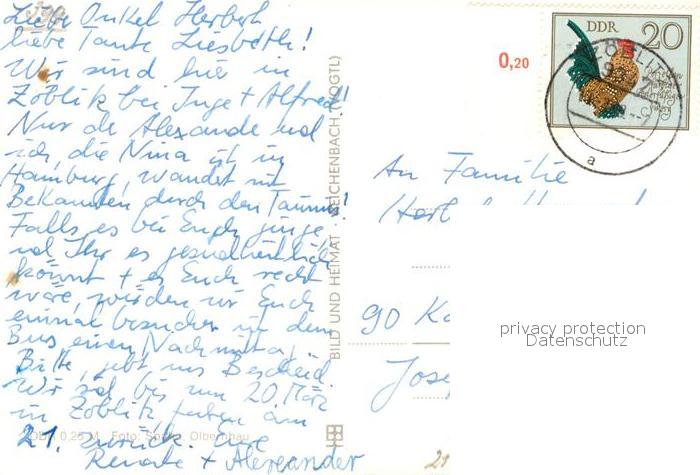 Liebe Onkel Herbert
liebe Tante Liesbeth!
Wir sind hier in
Zöblitz bei Inge + Alfred!
Nur de Alexande und
ich, die Nina ist in
Hamburg, wandert mit
Bekannten durch den Taunus!
Falls es bei Euch ginge
und Ihr es gesundheitlich
könnt + es Euch recht
wäre, würden wir Euch
einmal besuchen mit dem
Bus einen Nachmittag,
Bitte, gebt uns Bescheid
Wir sind bis zum 20. März
in Zöblitz fahren am
21. zurück. Eure
Renate + Alexander
0.25 M Foto: Olbernhau
BILD UND HEIMAT · REICHENBACH (VOGTL)
0,20
DDR 20
ZÖBLITZ
a
An Familie
Herb
90 Ka
Jose
21
privacy protection
Datenschutz